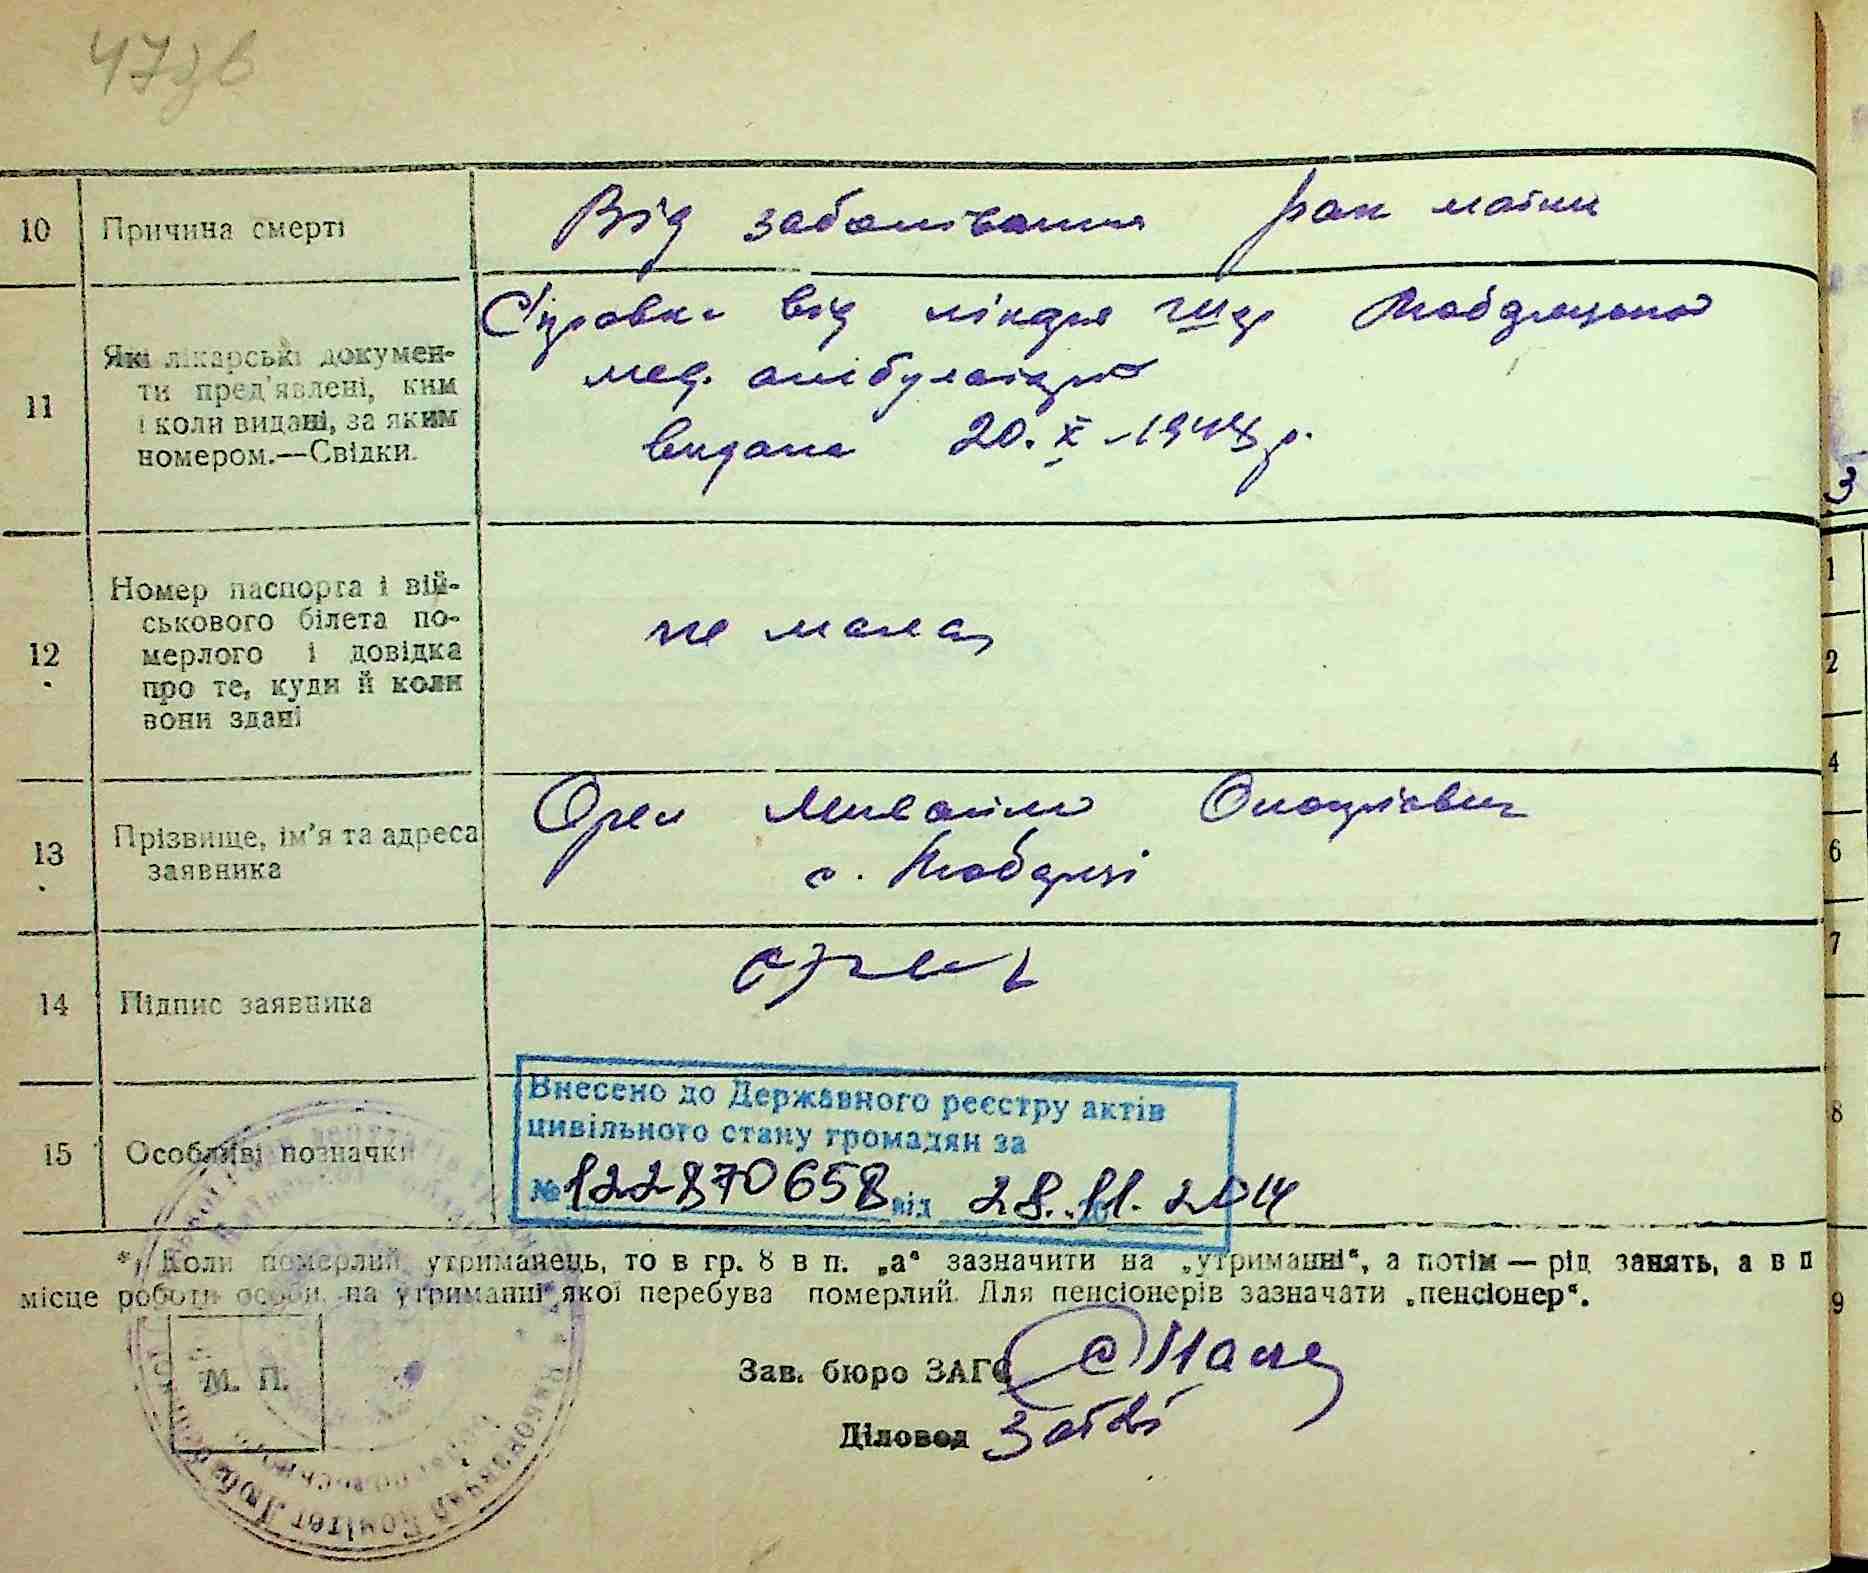 10 Причина смерті Від заболівання рак матки
11 Які лікарські докумен-
ти пред'явлені, ким
і коли видані, за яким
номером.—Свідки.
Справка від лікаря
мед. амбулаторії
видана 20. X -1944 р.
12 Номер паспорта і вій-
ськового білета по-
мерлого і довідка
про те, куди й коли
вони здані
не мала
13 Прізвище, ім'я та адреса
заявника
Орел Михайло
с. Любарці
14 Підпис заявника
15 Особливі позначки
Внесено до Державного реєстру актів
цивільного стану громадян за
№ 122870658 від 28. 11. 2014
*) Коли померлий утриманець, то в гр. 8 в п. „а“ зазначити на „утриманні“, а потім — рід занять, а в п
місце роботи особи, на утриманні якої перебува померлий. Для пенсіонерів зазначати „пенсіонер“.
М. П.
Зав. бюро ЗАГС
Діловод
1
2
4
6
7
8
9
3